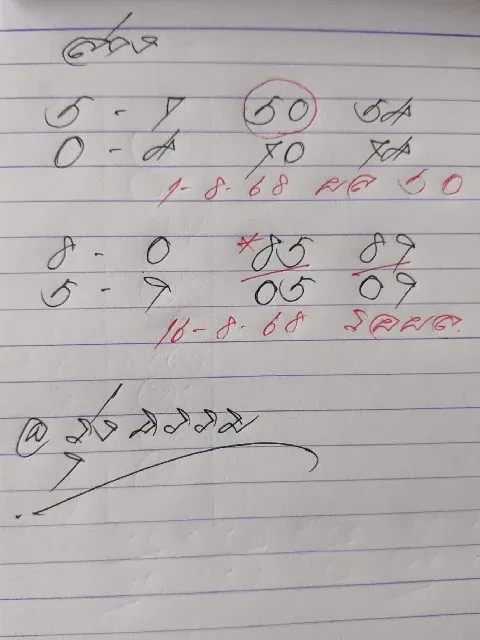 ล่าง
5 - 7 50 54
0 - 4 70 74
1-8-68 ผล 50
8 - 0 *85 89
5 - 9 05 09
16-8-68 รอผล.
@ รุ่ง